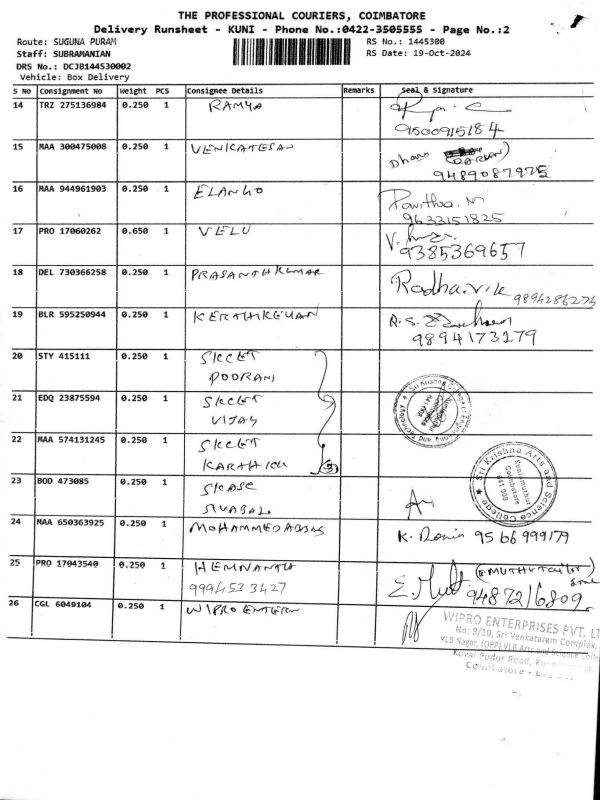 THE PROFESSIONAL COURIERS, COIMBATORE
Delivery Runsheet - KUNI - Phone No.:0422-3505555 - Page No.:2
Route: SUGUNA PURAM
RS No.: 1445300
Staff: SUBRAMANIAN
RS Date: 19-Oct-2024
DRS No.: DCJB144530002
Vehicle: Box Delivery
S No Consignment No Weight PCS Consignee Details Remarks Seal & Signature
14 TRZ 275136984 0.250 1 RAMYA
9500915184
15 MAA 300475008 0.250 1 VENKATESAN
9489087925
16 MAA 944961903 0.250 1 ELANGO Pavithra. M
9633151825
17 PRO 17060262 0.650 1 VELU
9385369657
18 DEL 730366258 0.250 1 PRASANTHKUMAR Radha.V.K
9894286275
19 BLR 595250944 0.250 1 KERTHIKEYAN R.S.
9894173279
20 STY 415111 0.250 1 SKCET
POORANI
21 EDQ 23875594 0.250 1 SKCET
VIJAY
22 MAA 574131245 0.250 1 SKCET
KARTHICK 3
Sri Krishna College of Engineering and Technology
23 BOD 473085 0.250 1 SKASC
SIVABAL
Sri Krishna Arts and Science College
Kuniamuthur
Coimbatore
641 008
24 MAA 650363925 0.250 1 MOHAMMED ABBAS K. 9566999179
25 PRO 17043540 0.250 1 HEMNANTH
9994533427
E. (E MUTHU
9487216809
26 CGL 6049104 0.250 1 WIPRO ENTERPR
WIPRO ENTERPRISES PVT. LT
No: 9/10, Sri Venkataram Complex,
VLB Nagar, (OPP) VLB Arts and Science Colle
Kovai Pudur Road,
Coimbatore -